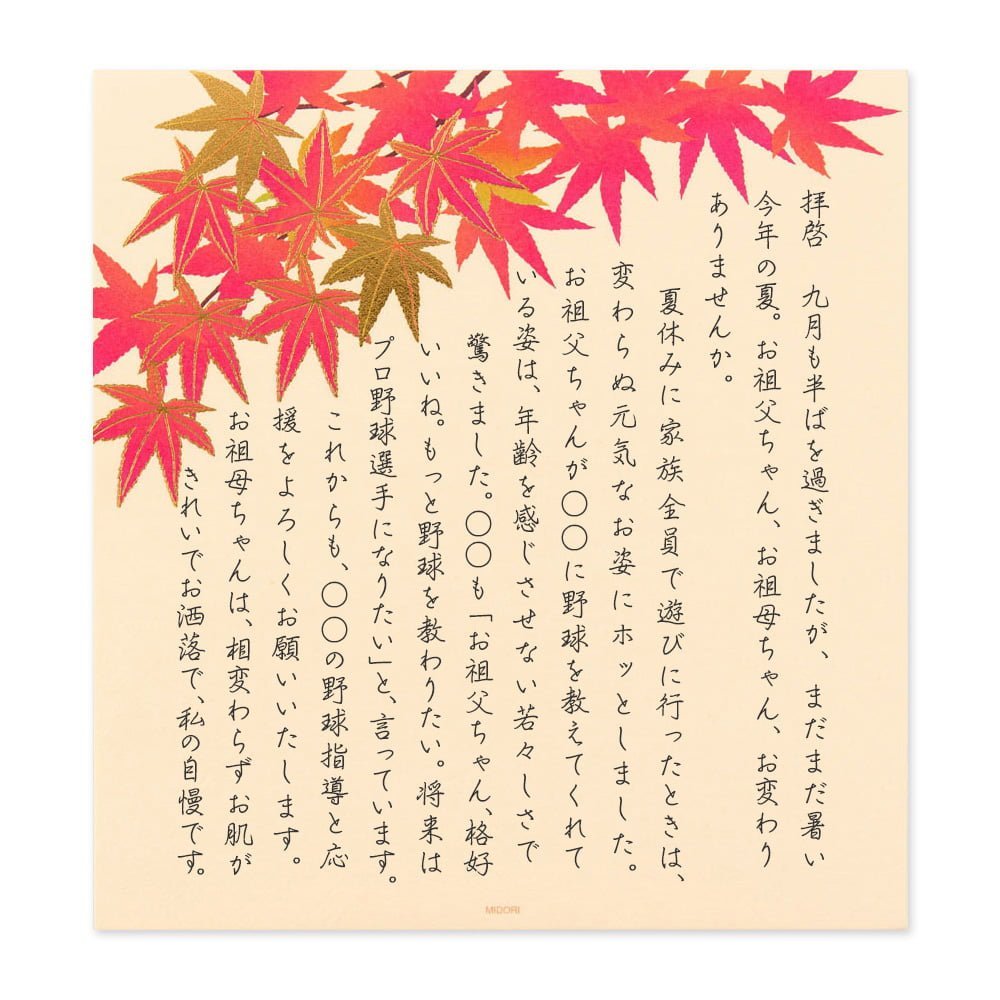 拝啓　九月も半ばを過ぎましたが、まだまだ暑い
今年の夏。お祖父ちゃん、お祖母ちゃん、お変わり
ありませんか。
夏休みに家族全員で遊びに行ったときは、
変わらぬ元気なお姿にホッとしました。
お祖父ちゃんが〇〇に野球を教えてくれて
いる姿は、年齢を感じさせない若々しさで
驚きました。〇〇も「お祖父ちゃん、格好
いいね。もっと野球を教わりたい。将来は
プロ野球選手になりたい」と、言っています。
これからも、〇〇の野球指導と応
援をよろしくお願いいたします。
お祖母ちゃんは、相変わらずお肌が
きれいでお洒落で、私の自慢です。
MIDORI